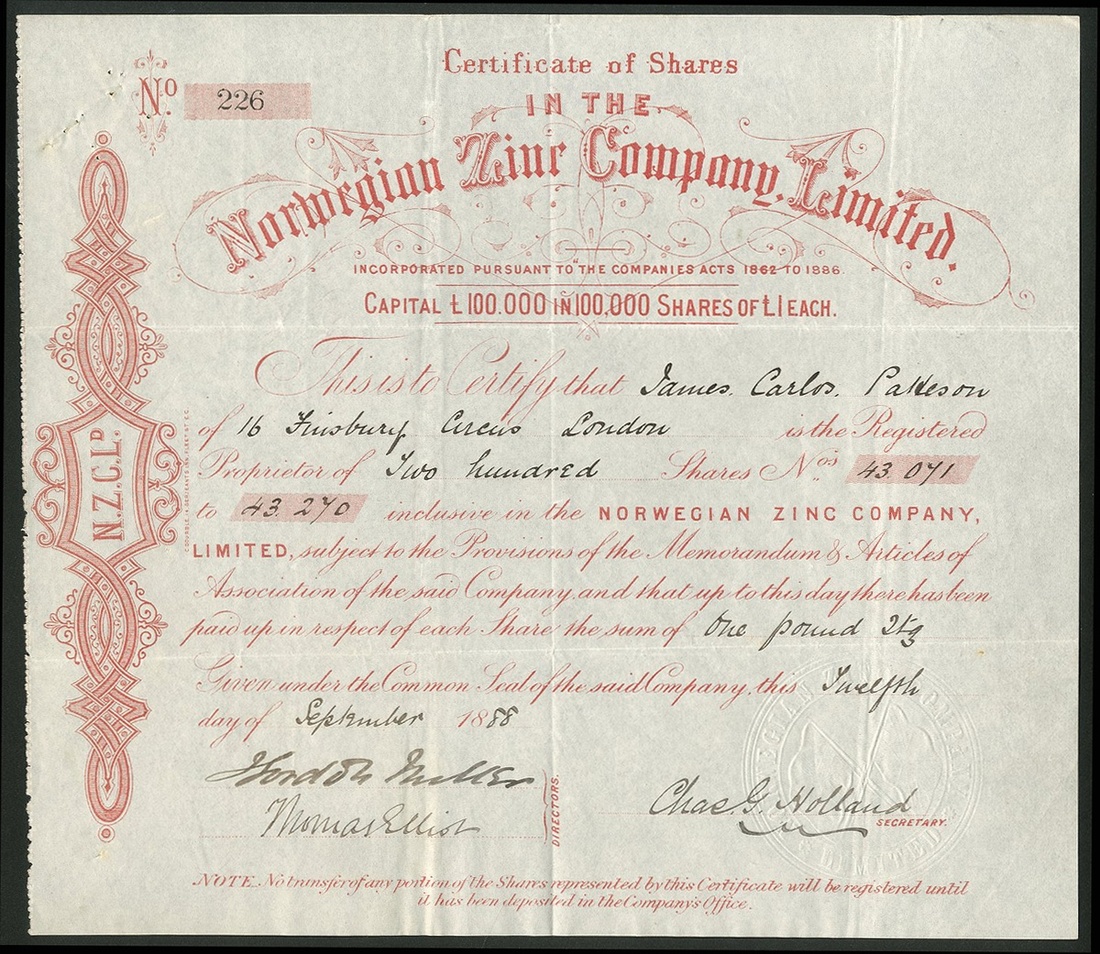 Certificate of Shares
No. 226
IN THE
Norwegian Zinc Company, Limited.
INCORPORATED PURSUANT TO "THE COMPANIES ACTS 1862 TO 1886.
CAPITAL £100.000 IN 100,000 SHARES OF £1 EACH.
This is to Certify that James. Carlos. Patteson
of 16 Finsbury Circus London is the Registered
Proprietor of Two hundred Shares Nos 43.071
to 43.270 inclusive in the NORWEGIAN ZINC COMPANY,
LIMITED, subject to the Provisions of the Memorandum & Articles of
Association of the said Company, and that up to this day there has been
paid up in respect of each Share the sum of One pound Stg
Given under the Common Seal of the said Company, this Twelfth
day of September 1888
Thomas Elliot
DIRECTORS.
Chas. G. Holland
SECRETARY.
NOTE. No transfer of any portion of the Shares represented by this Certificate will be registered until
it has been deposited in the Company's Office.
N.Z.C. LD.